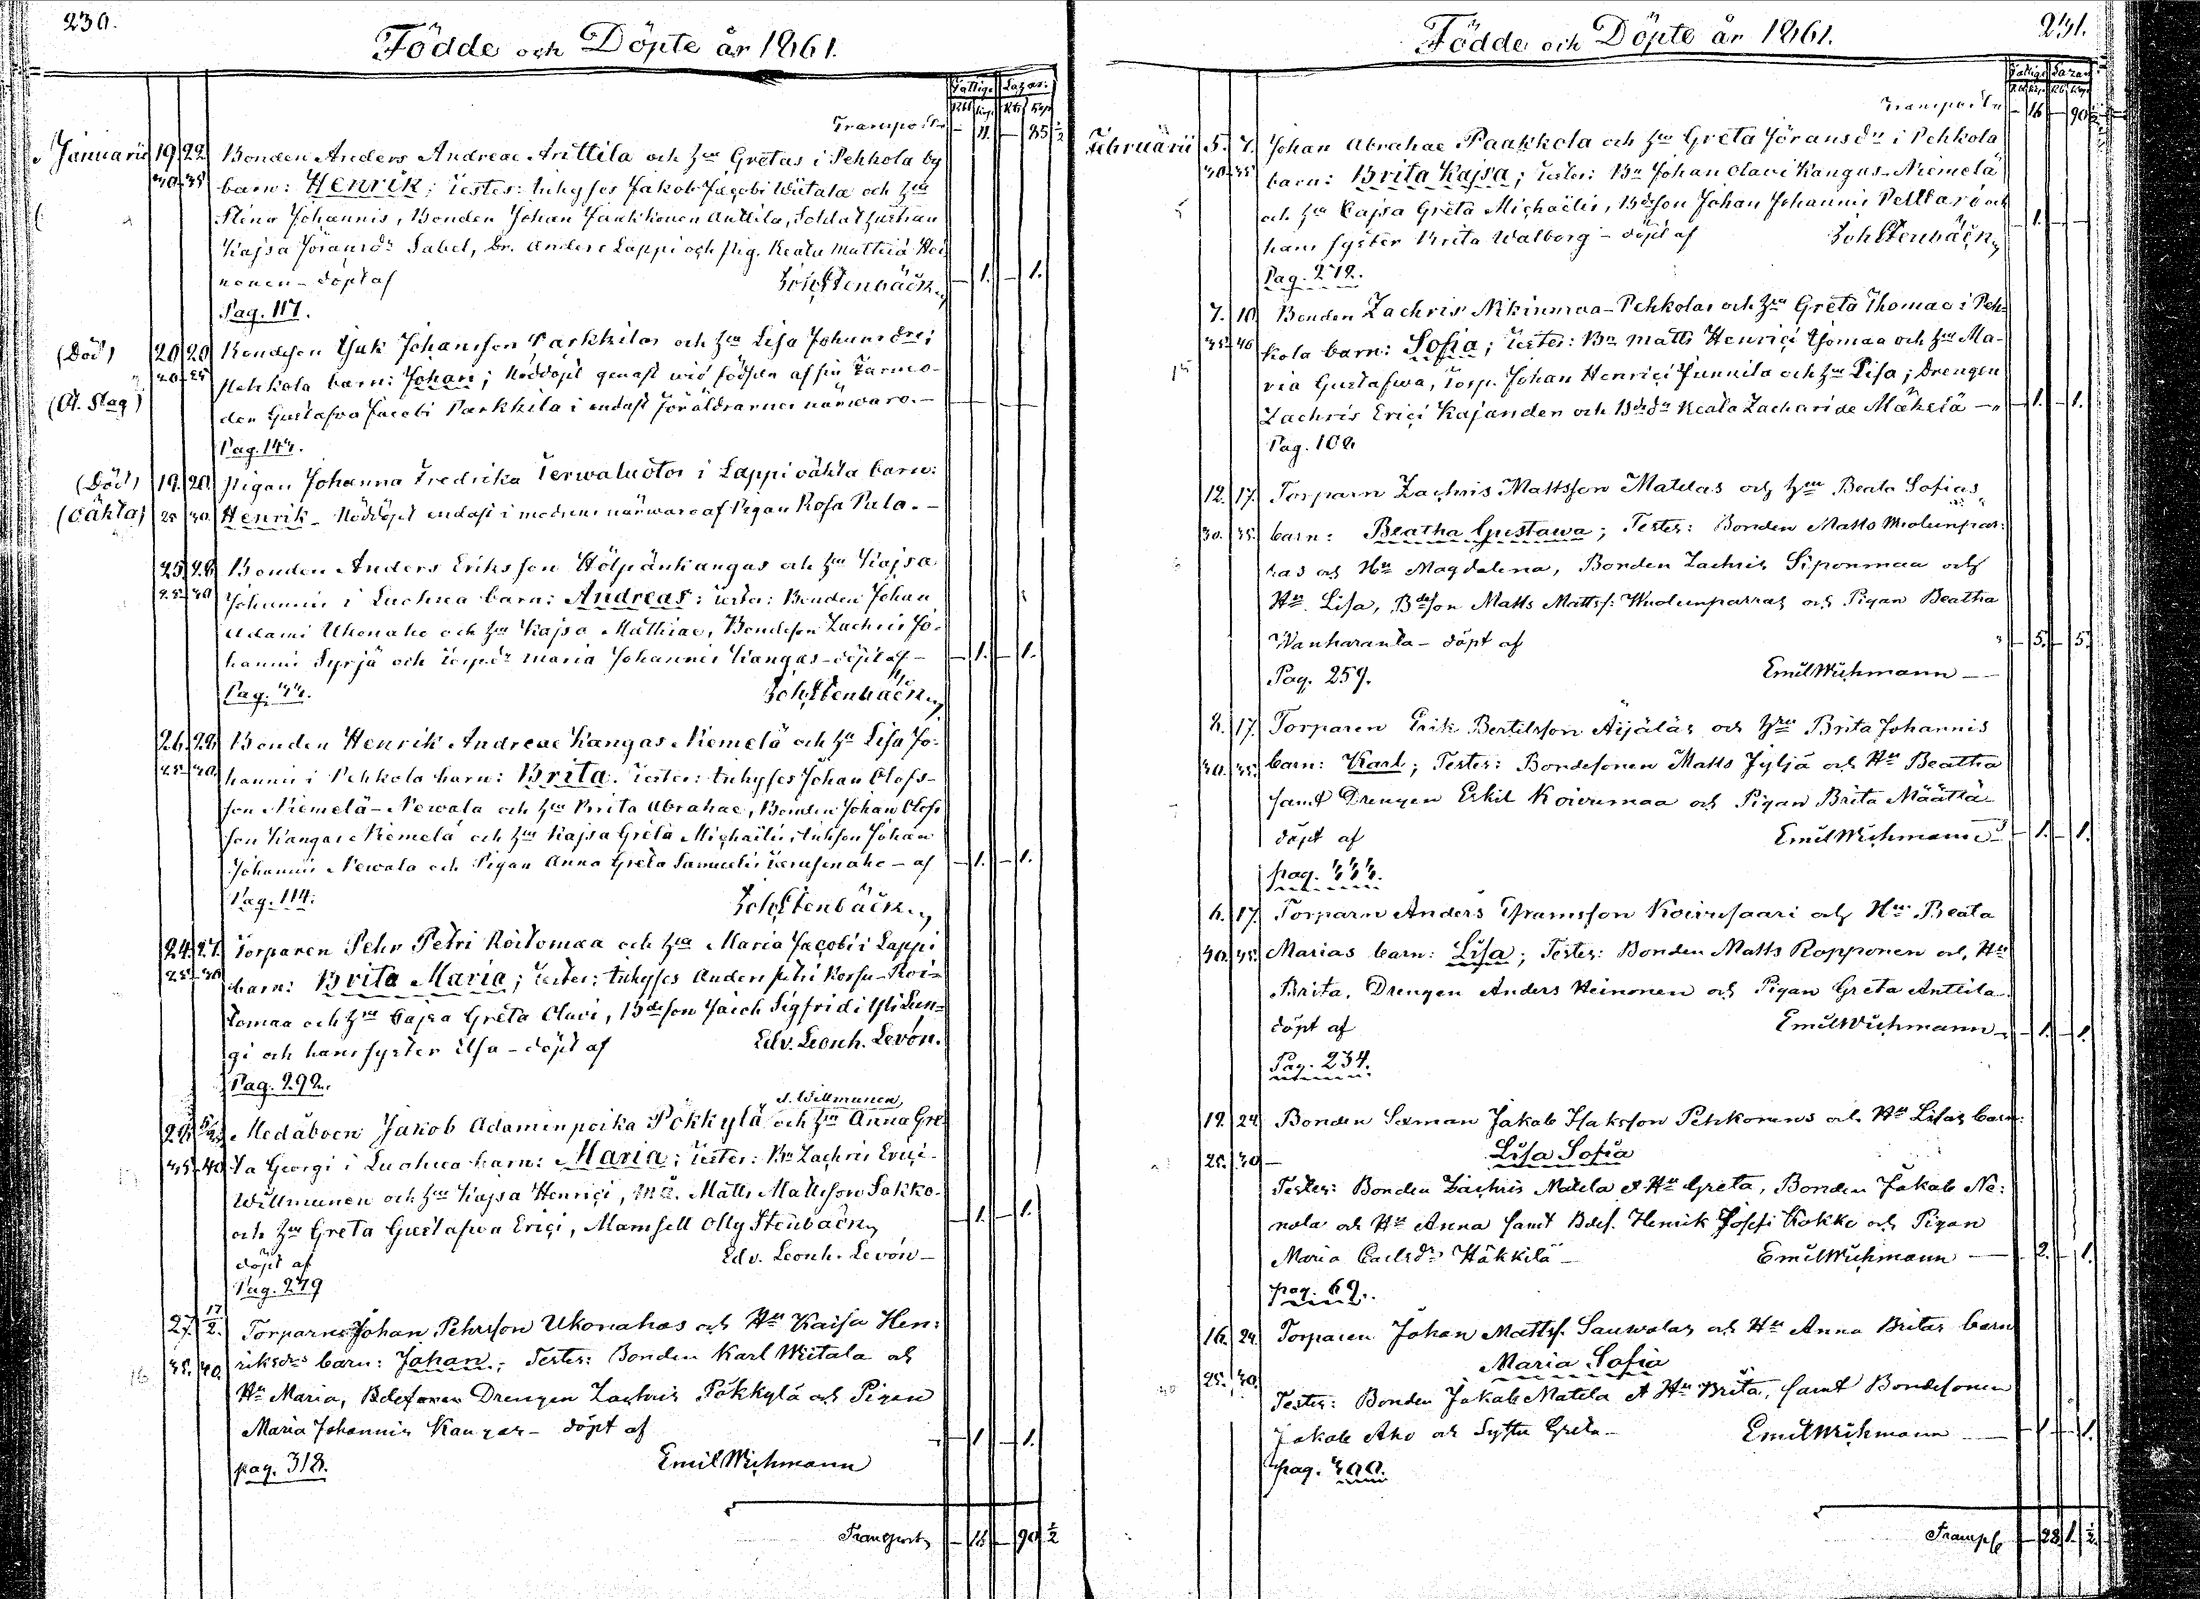 230.
Födde och Döpte år 1861.
Fattige Lazar:
Rbl Kop. Rbl Kop.
Transport – 11. – 85 ½
Januarii 19. 22. Bonden Anders Andreae Anttila och Hu Gretas i Pehkola by
30-35 barn: Henrik; Testes: Inhyses Jakob Jacobi Wiitala och Hu
Stina Johannis, Bonden Johan Anttila, Soldat
Kajsa Jöransdr Sabel, Dr. Anders Lappi och Pig. Beata Matthiä Hei
nonen – döpt af Joh Stenbäck – 1. – 1.
Pag. 117.
(Död) 20 20 Bondeson Isak Johansson Parkkilas och Hu Lisa Johansdrs i
20-25 Pehkola barn: Johan; Nöddöpt genast wid födseln af sin Farmo-
den Gustafwa Jacobi Parkkila i endast föräldrarnes närwaro. –
Pag. 144.
(Död) 19. 20. Pigan Johanna Fredrika Terwaluotos i Lappi oäkta barn:
(oäkta) 25 30 Henrik – Nöddöpt endast i modrens närwaro af Pigan Rosa Pulo. –
25. 28 Bonden Anders Eriksson Hölpänkangas och Hu Kajsa
25-30 Johannis i Luohua barn: Andreas; Testes: Bonden Johan
Adami Ukonaho och Hu Kajsa Mathiae, Bondeson Zachris Jo-
hannis Syrjä och Torpdr Maria Johannis Kangas – döpt af – – 1. – 1.
Pag. 44. Joh Stenbäck
26. 28 Bonden Henrik Andreae Kangas Niemelä och Hu Lisa Jo-
25-30 hannis i Pehkola barn: Brita. Testes: Inhyses Johan Olofs-
son Niemelä-Newala och Hu Brita Abrahae, Bonden Johan Olofs
son Kangas Niemelä och Hu Kajsa Greta Michaelis, Inhson Johan
Johannis Newala och Pigan Anna Greta Samuelis – af – 1. – 1.
Pag. 114. Joh Stenbäck
24. 27. Torparen Pehr Petri Koitomaa och Hu Maria Jacobi i Lappi
25-30 barn: Brita Maria; Testes: Inhyses Anders Petri Korsu-Koi-
tomaa och Hu Cajsa Greta Olavi, Bdeson Sigfridi YliLun-
gi och hans syster Elsa – döpt af Edv. Leonh. Levón.
Pag. 292.
s. Willmunen
28 Medåboen Jakob Adaminpoika Pökkylä och Hu Anna Gre
35-40 ta Georgi i Luohua barn: Maria; Testes: Bn Zachris Erici
Willmunen och Hu Kajsa Henrici, Må. Matts Mattsson Sakko-
och Hu Greta Gustafwa Erici, Mamsell Olly Stenbäck – 1. – 1.
döpt af Edv. Leonh. Levón –
Pag. 279
27. 17/2. Torparne Johan Pehrsson Ukonahos och Hu Kaisa Hen:
35. 40. riksdrs barn: Johan; Testes: Bonden Karl Wiitala och
Hu Maria, Drengen Zachris Pökkylä och Pigan
Maria Johannis Kangas – döpt af – 1. – 1.
pag. 318. Emil Wichmann
Transport – 16 – 90 ½
231.
Födde och Döpte år 1861.
Fattige Lazar.
Transporte – 16 – 90 ½
Februarii 5. 7. Johan Abrahae Paakkola och Hu Greta Jöransdr i Pehkola
30-35 barn: Brita Kajsa; Testes: Bn Johan Olavi Kangas-Niemelä
och Hu Cajsa Greta Michaelis, Bdeson Johan Johannis Pelttari och
hans syster Brita Walborg – döpt af Joh Stenbäck – 1. –
Pag. 272.
7. 10. Bonden Zachris Nikinmaa-Pehkolas och Hu Greta Thomae i Peh-
35-40 kola barn: Sofia; Testes: Bn Matts Henrici Isomaa och Hu Ma-
ria Gustafwa, Torp. Johan Henrici Junnila och Hu Lisa; Drengen
Zachris Erici Kajanden och Bdedr Beata Zachariae Mäkelä – – 1. – 1.
Pag. 102.
12. 17. Torparn Zachris Mattsson Matelas och Hu Beata Sofias
30. 35. barn: Beatha Gustawa; Testes: Bonden Matts Wuolunpar-
ras och Hu Magdalena, Bonden Zachris Siponmaa och
Hu Lisa, Bdeson Matts Mattss: Wuolunparras och Pigan Beatha
Wanharanta – döpt af – 5. – 5.
Pag. 259. Emil Wichmann –
8. 17. Torparen Erik Bertilsson Äijäläs och Hu Brita Johannis
30. 35. barn: Karl; Testes: Bondesonen Matts Jyljä och Hu Beatha
samt Drengen Erkil Koivumaa och Pigan Brita Määttä
döpt af Emil Wichmann – 1. – 1.
pag. 333.
6. 17. Torparn Anders Koivusaari och Hu Beata
30. 35. Marias barn: Lisa; Testes: Bonden Matts Ropponen och Hu
Brita, Drengen Anders Heinonen och Pigan Greta Anttila
döpt af Emil Wichmann – 1. – 1.
Pag. 234.
19. 24 Bonden Sexman Jakob Isaksson Pehkonens och Hu Lisas barn:
25. 30 – Lisa Sofia
Testes: Bonden Zachris Matela & Hu Greta, Bonden Jakob Ne:
nola och Hu Anna samt Bdes. Henrik Josefi Kokko och Pigan
Maria Carlsdr Häkkilä – Emil Wichmann – 2. – 1.
pag. 69.
16. 24. Torparen Johan Mattss. Sauwolas och Hu Anna Britas barn
25. 30. Maria Sofia
Testes: Bonden Jakob Matela & Hu Brita, samt Bondesonen
Jakob Aho och Syster Greta – Emil Wichmann – 1 – 1.
pag. 300.
Transp – 28 1. ½